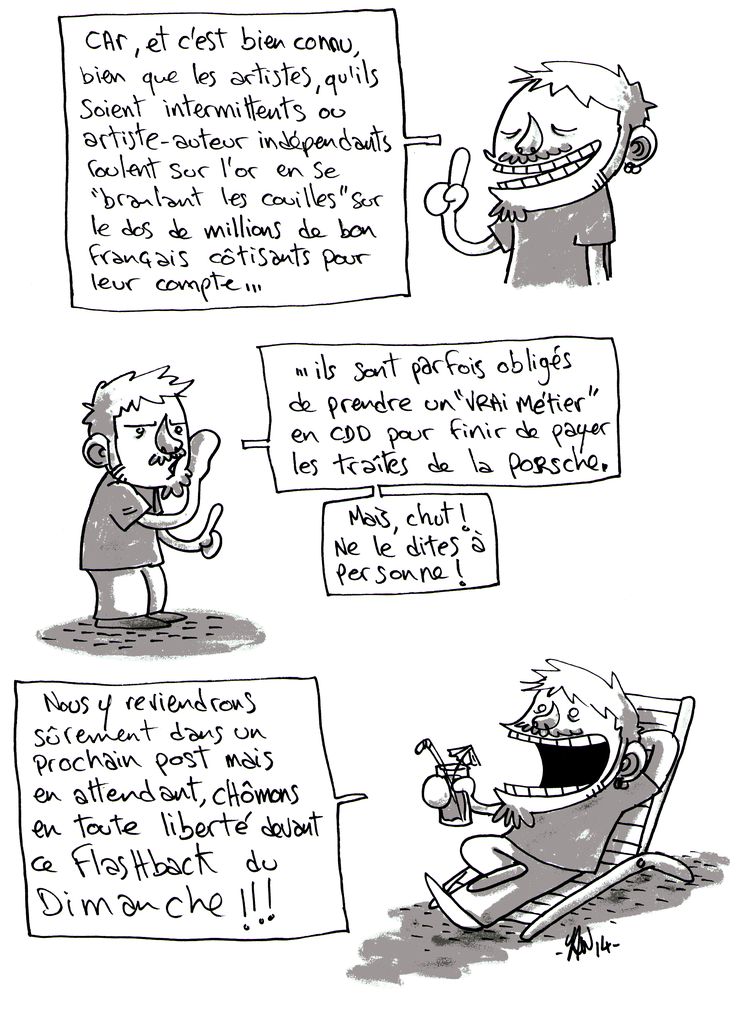 CAr, et c'est bien connu,
bien que les artistes, qu'ils
Soient intermittents ou
artiste-auteur indépendants
roulent sur l'or en se
"branlant les couilles" sur
le dos de millions de bon
français côtisants pour
leur compte...
...ils sont parfois obligés
de prendre un "VRAi Métier"
en CDD pour finir de payer
les traîtes de la PORSche.
Mais, chut!
Ne le dites à
personne!
Nous y reviendrons
sûrement dans un
prochain post mais
en attendant, CHômons
en toute liberté devant
ce FlasHback du
Dimanche!!!